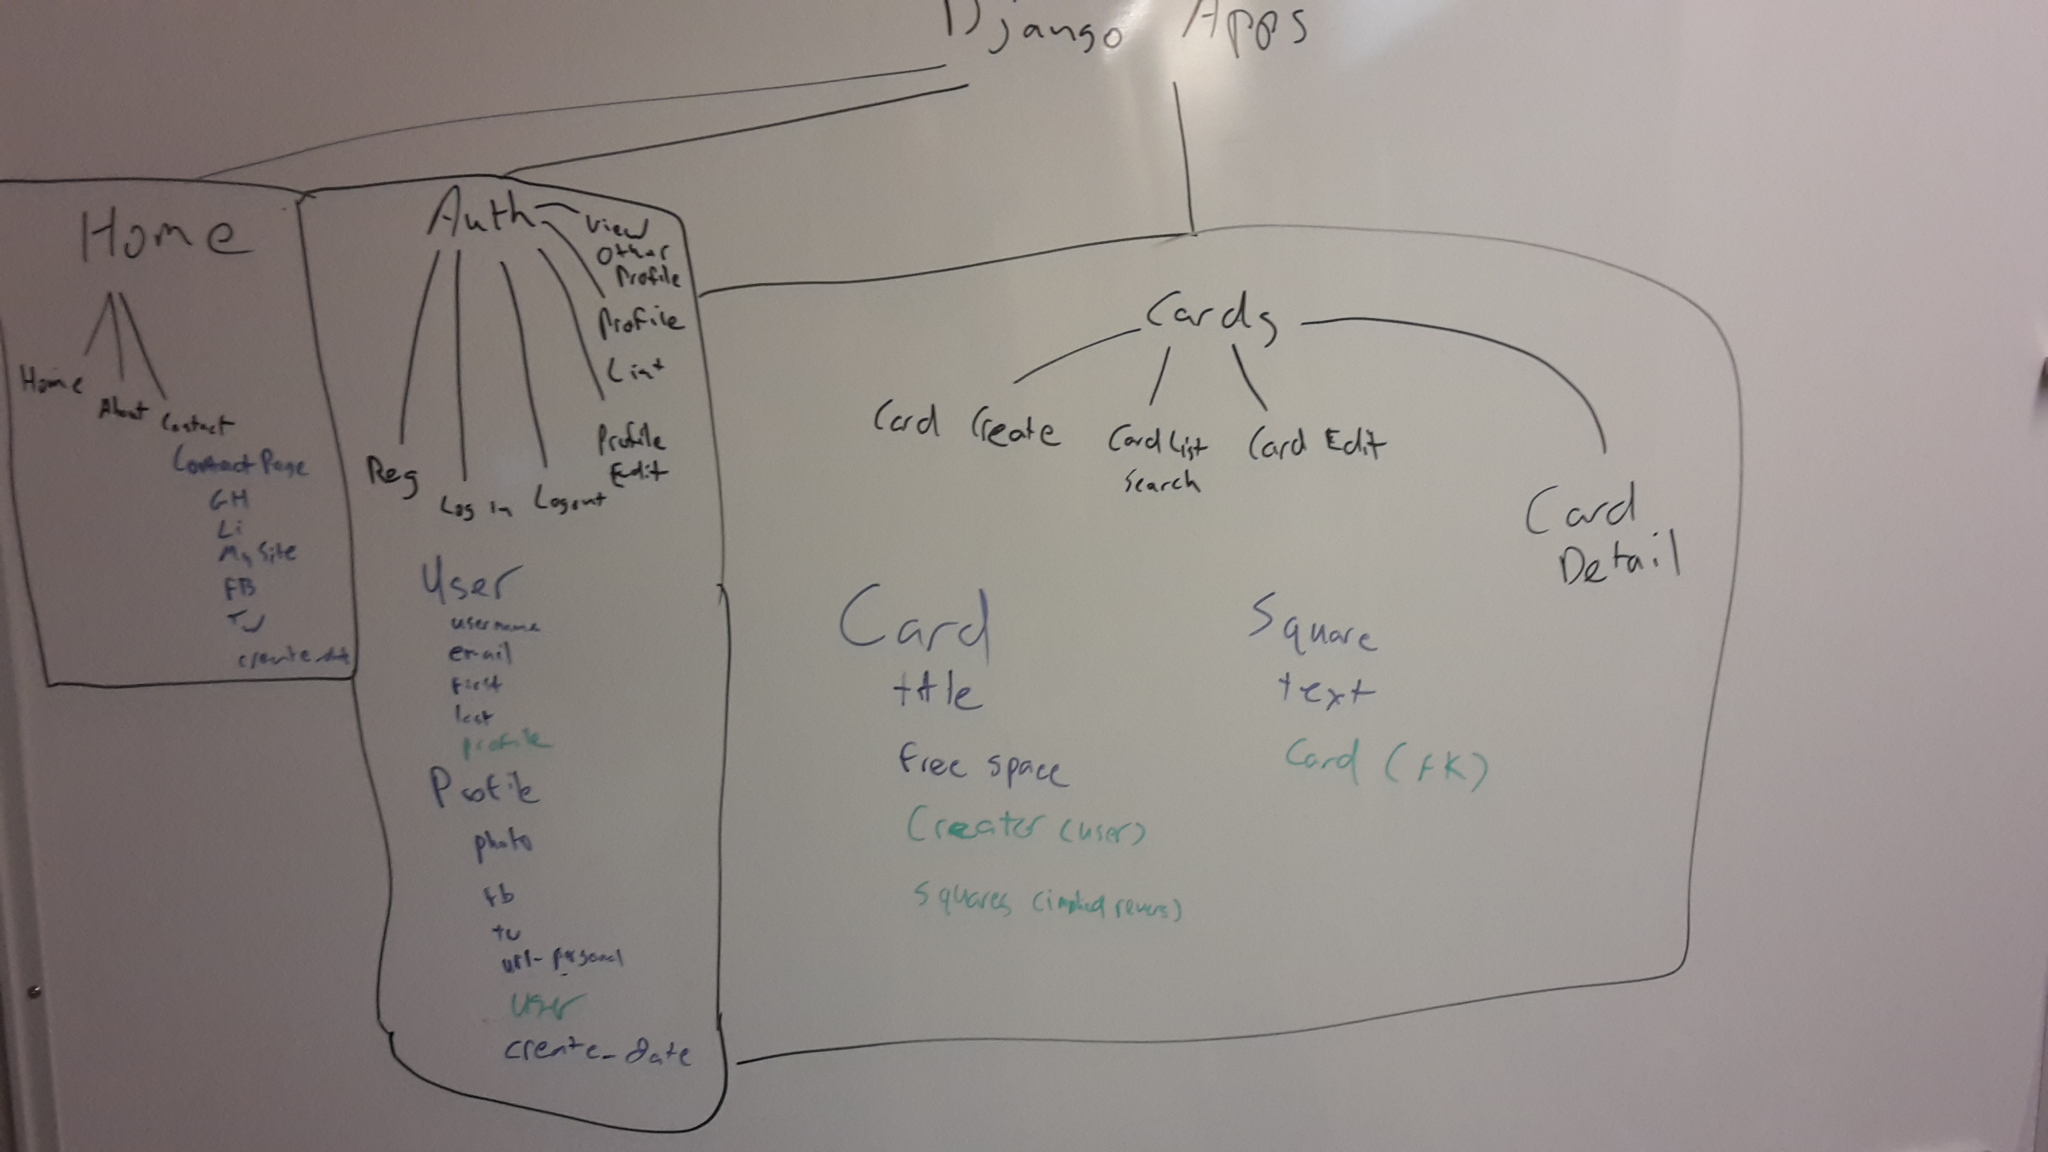 Django Apps
Home
Home
About
Contact
Contact Page
GH
Li
My Site
FB
TW
create date
Auth
View
Other
Profile
Profile
List
Profile
Edit
Reg
Log in
Logout
User
username
email
first
last
profile
Profile
photo
fb
tw
url-personal
user
create_date
Cards
Card Create
Card List
Search
Card Edit
Card
Detail
Card
title
free space
Creator (user)
squares (implied revers)
Square
text
Card (FK)